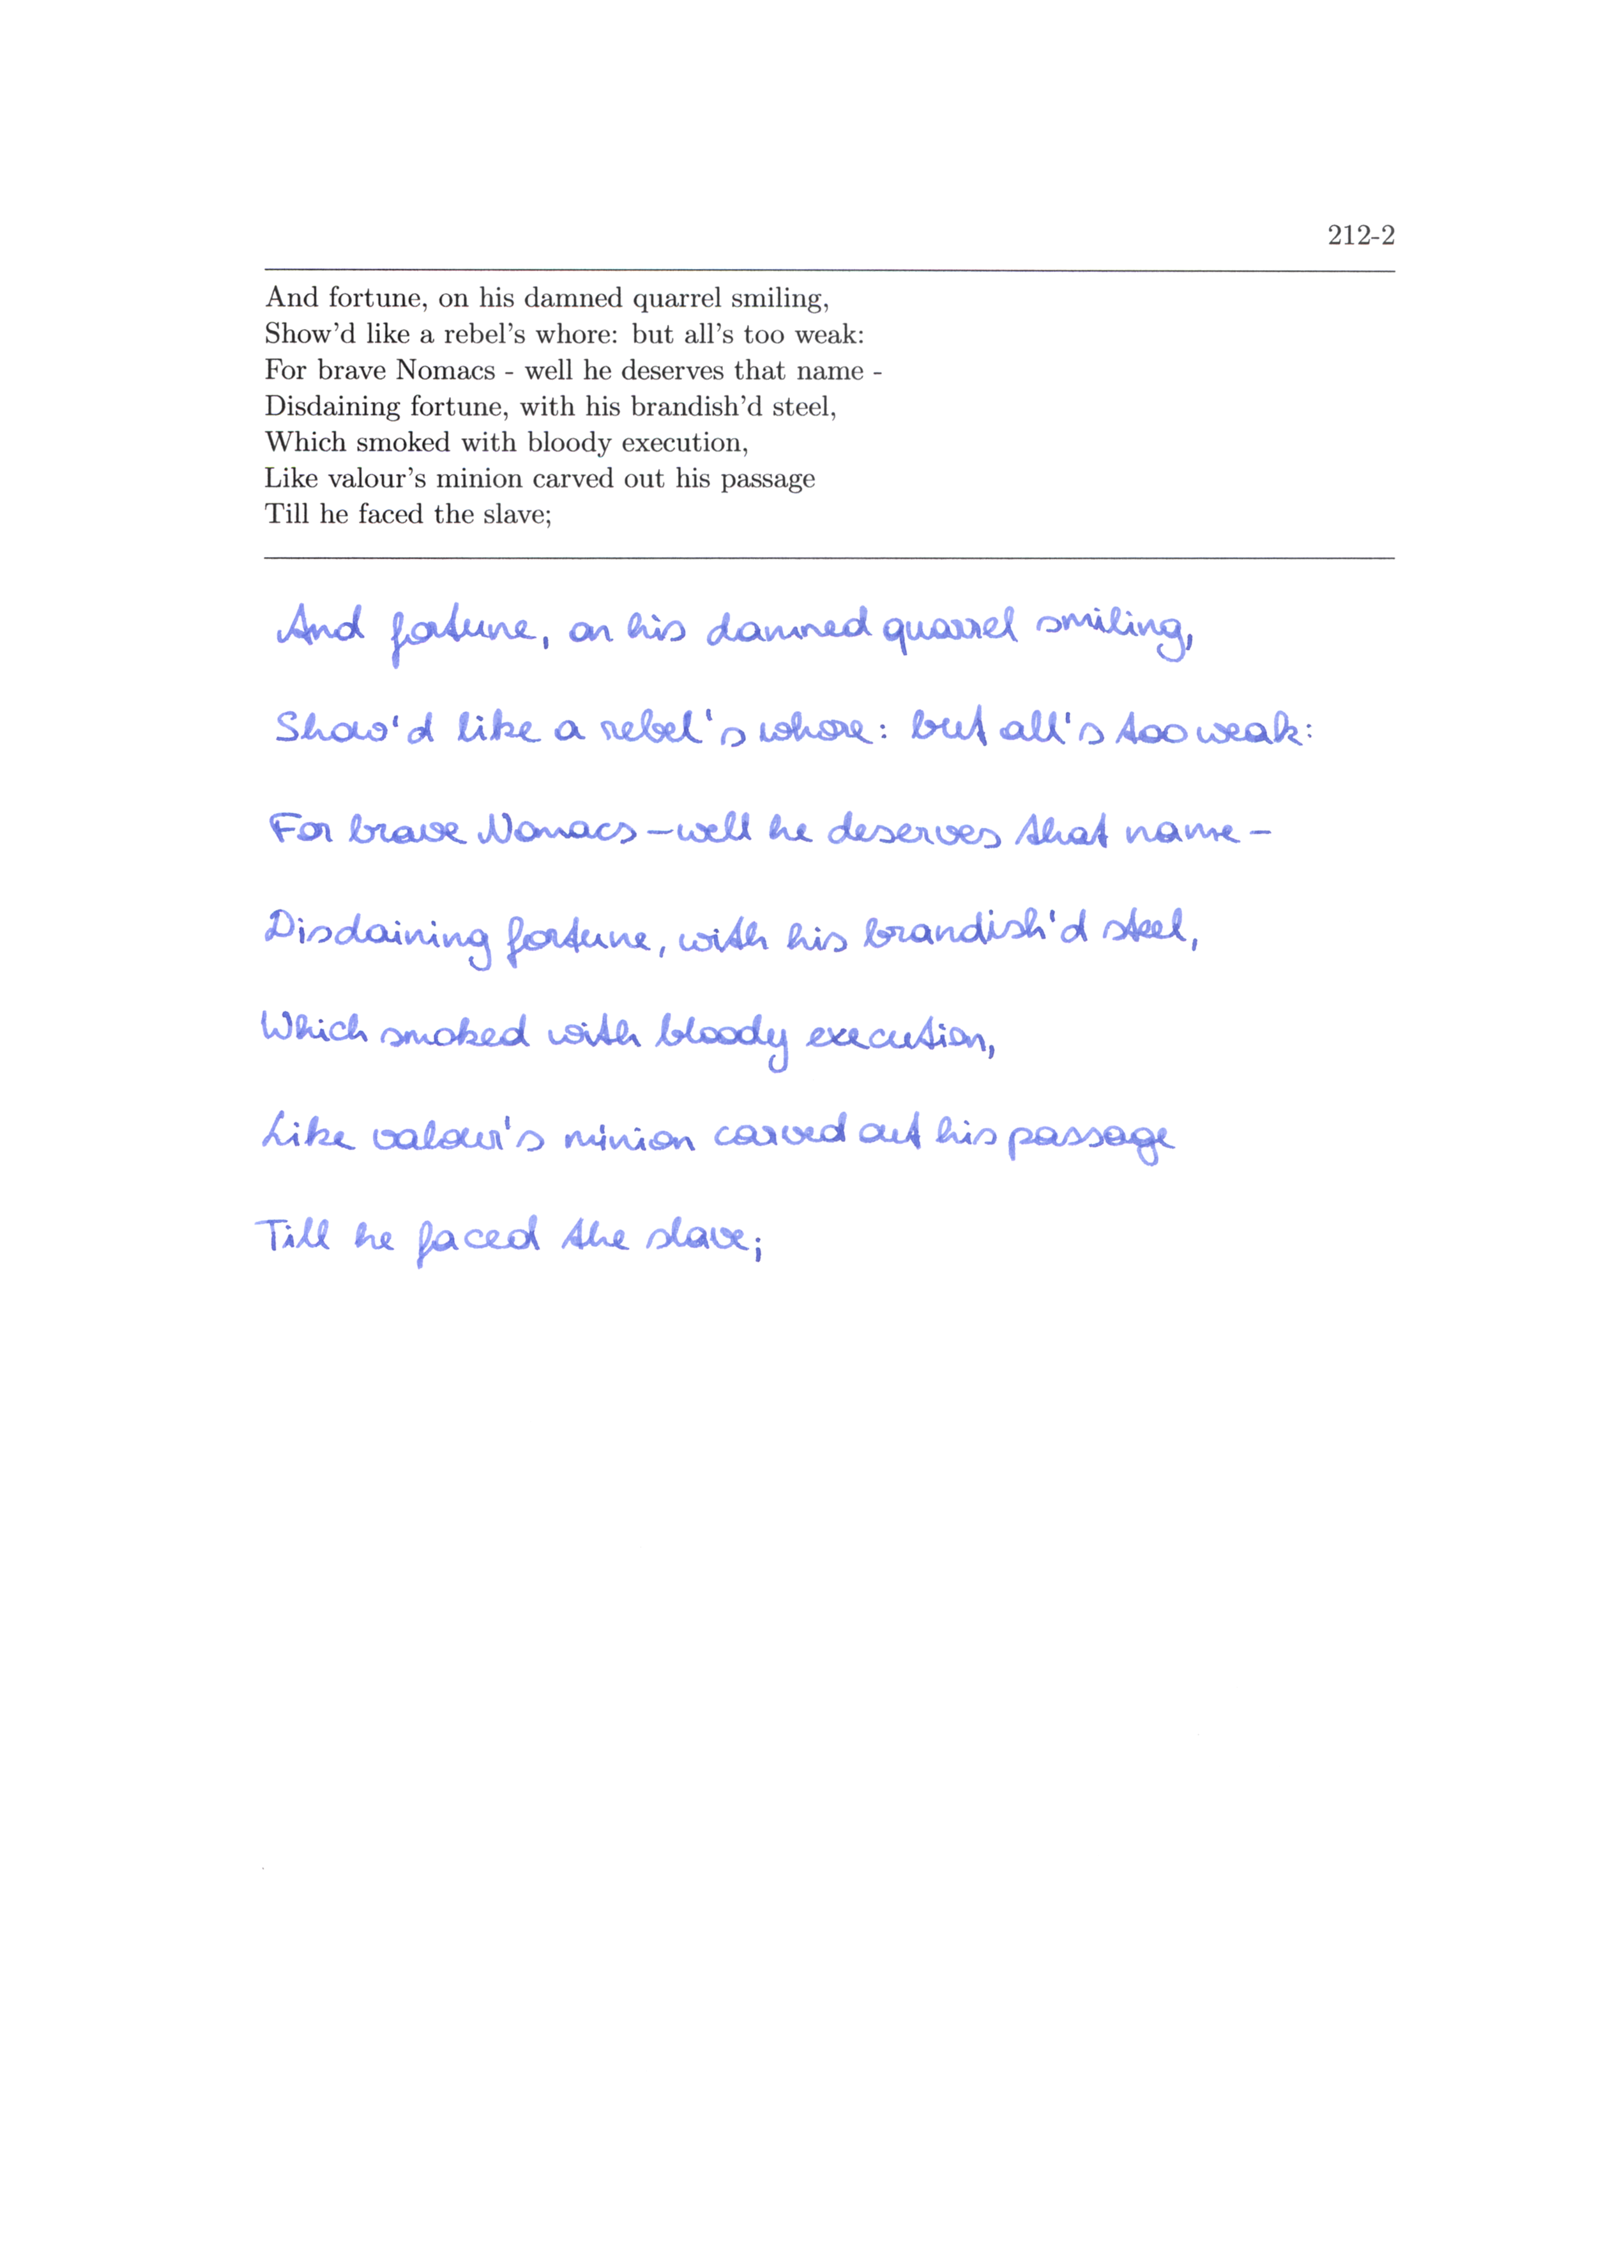 212-2
And fortune, on his damned quarrel smiling,
Show'd like a rebel's whore: but all's too weak:
For brave Nomacs - well he deserves that name -
Disdaining fortune, with his brandish'd steel,
Which smoked with bloody execution,
Like valour's minion carved out his passage
Till he faced the slave;
And fortune, on his damned quarrel smiling,
Show'd like a rebel's whore: but all's too weak:
For brave Nomacs - well he deserves that name -
Disdaining fortune, with his brandish'd steel,
Which smoked with bloody execution,
Like valour's minion carved out his passage
Till he faced the slave;